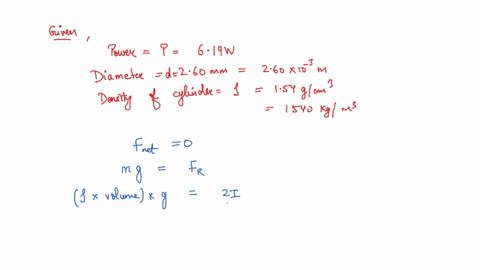 Given,
Power = P = 6.19W
Diameter = d = 2.60 mm = 2.60 × 10⁻³ m
Density of cylinder = ρ = 1.54 g/cm³
= 1540 kg/m³
F_net = 0
mg = F_R
(ρ × volume) × g = 2I